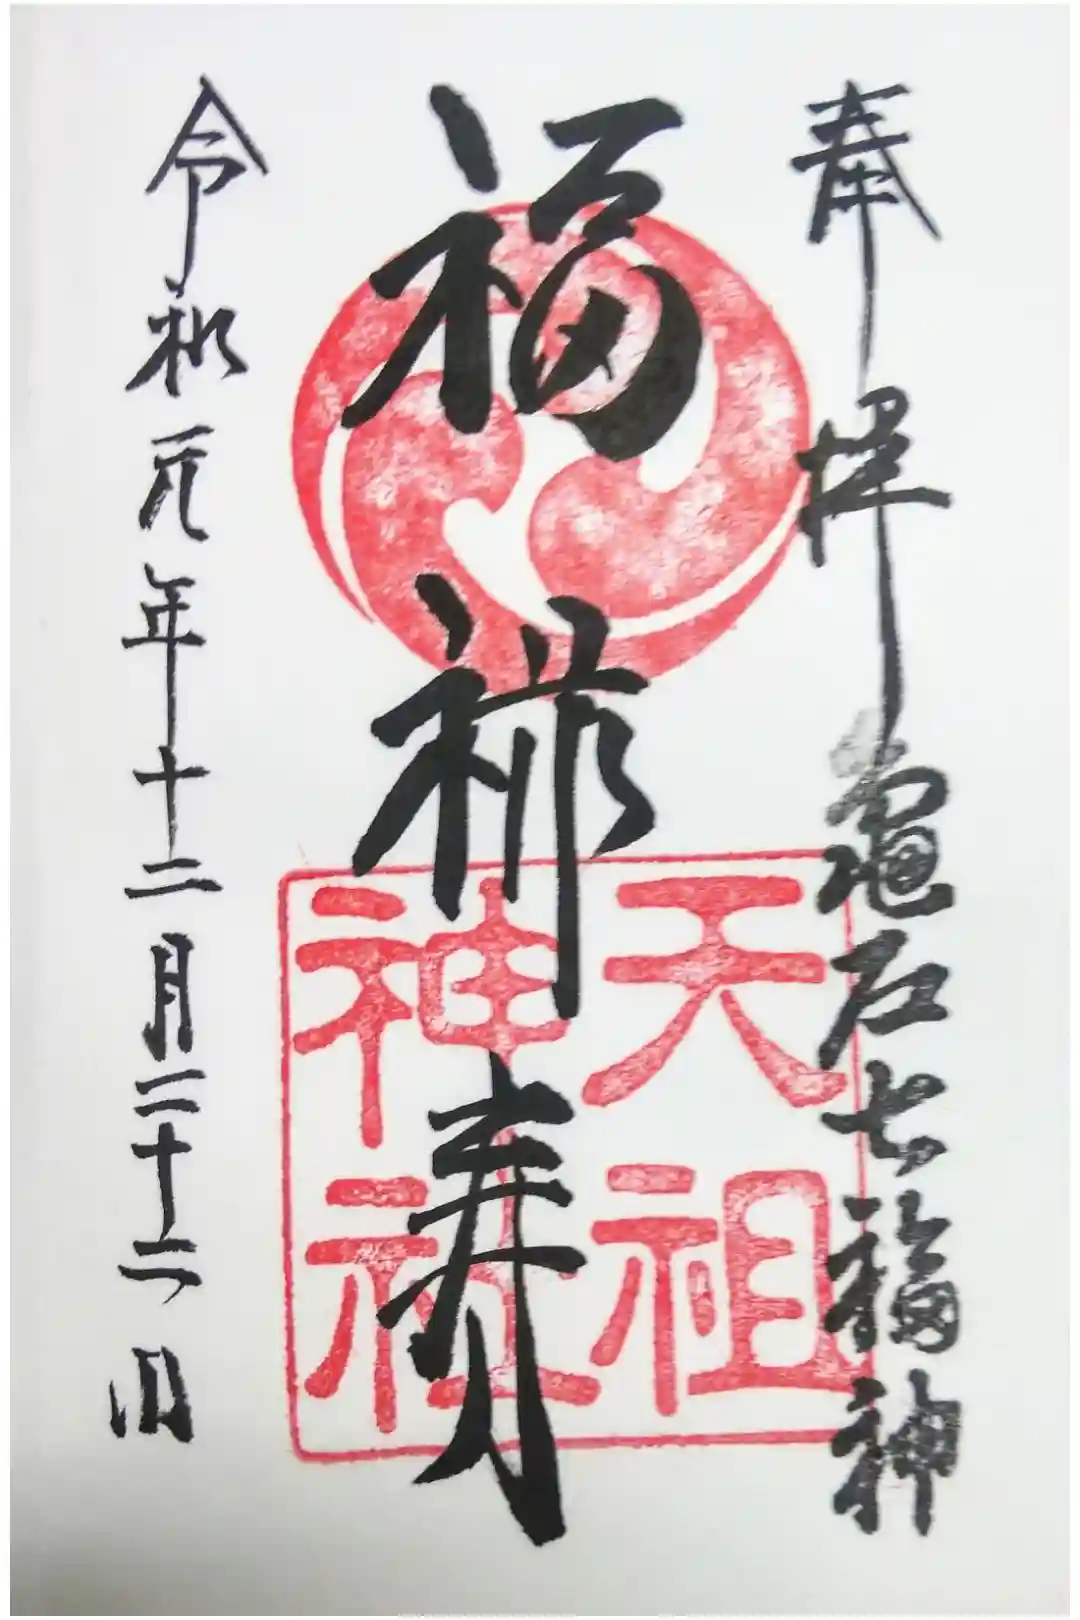 奉拝 亀戸七福神
福禄寿
令和元年十二月二十二日
天祖
神社